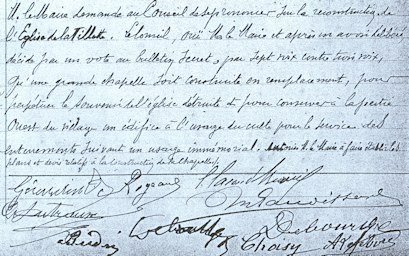 M. le Maire demande au Conseil de se prononcer sur la reconstruction de
l'Eglise de la Villette. Le Conseil, ouï M. le Maire et après en avoir délibéré
décide par un vote au bulletin secret, par sept voix contre trois voix,
qu'une grande chapelle soit construite en remplacement, pour
rappeler le souvenir de l'église détruite et pour conserver à la partie
Ouest du village un édifice à l'usage du culte pour le service des
enterrements suivant un usage immémorial. autorise M. le Maire à faire les
plans et devis relatif à la construction de la chapelle
Rogeand
Debourge
Choisy Lefebvre